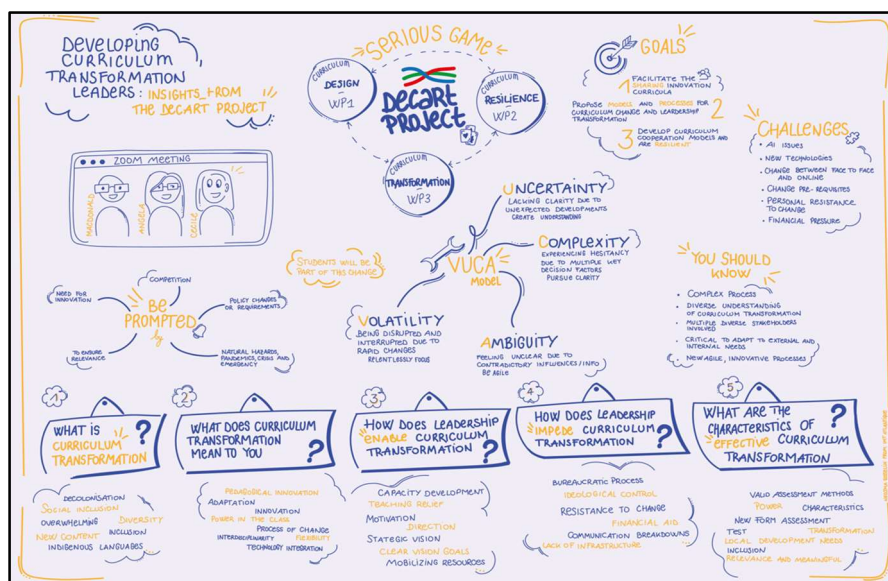 DEVELOPING
CURRICULUM
TRANSFORMATION
LEADERS: INSIGHTS FROM
THE DECART PROJECT
SERIOUS GAME
CURRICULUM
DESIGN
WP1
DECART
PROJECT
CURRICULUM
RESILIENCE
WP2
CURRICULUM
TRANSFORMATION
WP3
GOALS
1 FACILITATE THE
SHARING INNOVATION
CURRICULA
PROPOSE MODELS AND PROCESSES FOR
CURRICULUM CHANGE AND LEADERSHIP
TRANSFORMATION
2
3 DEVELOP CURRICULUM
COOPERATION MODELS AND
ARE RESILIENT
CHALLENGES
• AI ISSUES
• NEW TECHNOLOGIES
• CHANGE BETWEEN FACE TO FACE
AND ONLINE
• CHANGE PRE-REQUISITES
• PERSONAL RESISTANCE
TO CHANGE
• FINANCIAL PRESSURE
ZOOM MEETING
MACDONALD
ANGELA
CECILE
STUDENTS WILL BE
PART OF THIS CHANGE
VUCA
MODEL
UNCERTAINTY
LACKING CLARITY DUE TO
UNEXPECTED DEVELOPMENTS
CREATE UNDERSTANDING
COMPLEXITY
EXPERIENCING HESITANCY
DUE TO MULTIPLE KEY
DECISION FACTORS
PURSUE CLARITY
VOLATILITY
BEING DISRUPTED AND
INTERRUPTED DUE TO
RAPID CHANGES
RELENTLESSLY FOCUS
AMBIGUITY
FEELING UNCLEAR DUE TO
CONTRADICTORY INFLUENCES/INFO
BE AGILE
YOU SHOULD
KNOW
• COMPLEX PROCESS
• DIVERSE UNDERSTANDING
OF CURRICULUM TRANSFORMATION
• MULTIPLE DIVERSE STAKEHOLDERS
INVOLVED
• CRITICAL TO ADAPT TO EXTERNAL AND
INTERNAL NEEDS
• NEW AGILE, INNOVATIVE PROCESSES
BE
PROMPTED
by
COMPETITION
NEED FOR
INNOVATION
POLICY CHANGES
OR REQUIREMENTS
TO ENSURE
RELEVANCE
NATURAL HAZARDS,
PANDEMICS, CRISIS AND
EMERGENCY
1
WHAT IS
CURRICULUM
TRANSFORMATION
?
DECOLONISATION
SOCIAL INCLUSION
OVERWHELMING DIVERSITY
NEW CONTENT INCLUSION
INDIGENOUS LANGUAGES
2
WHAT DOES CURRICULUM
TRANSFORMATION
MEAN TO YOU
?
PEDAGOGICAL INNOVATION
ADAPTATION
INNOVATION
POWER IN THE CLASS
PROCESS OF CHANGE
INTERDISCIPLINARITY FLEXIBILITY
TECHNOLOGY INTEGRATION
3
HOW DOES LEADERSHIP
ENABLE CURRICULUM
TRANSFORMATION
?
CAPACITY DEVELOPMENT
TEACHING RELIEF
MOTIVATION
DIRECTION
STATEGIC VISION
CLEAR VISION GOALS
MOBILIZING RESOURCES
4
HOW DOES LEADERSHIP
IMPEDE CURRICULUM
TRANSFORMATION
?
BUREAUCRATIC PROCESS
IDEOLOGICAL CONTROL
RESISTANCE TO CHANGE
FINANCIAL AID
COMMUNICATION BREAKDOWNS
LACK OF INFRASTRUCTURE
5
WHAT ARE THE
CHARACTERISTICS OF
EFFECTIVE CURRICULUM
TRANSFORMATION
?
VALID ASSESSMENT METHODS
POWER CHARACTERISTICS
NEW FORM ASSESSMENT
TEST TRANSFORMATION
LOCAL DEVELOPMENT NEEDS
INCLUSION
RELEVANCE AND MEANINGFUL